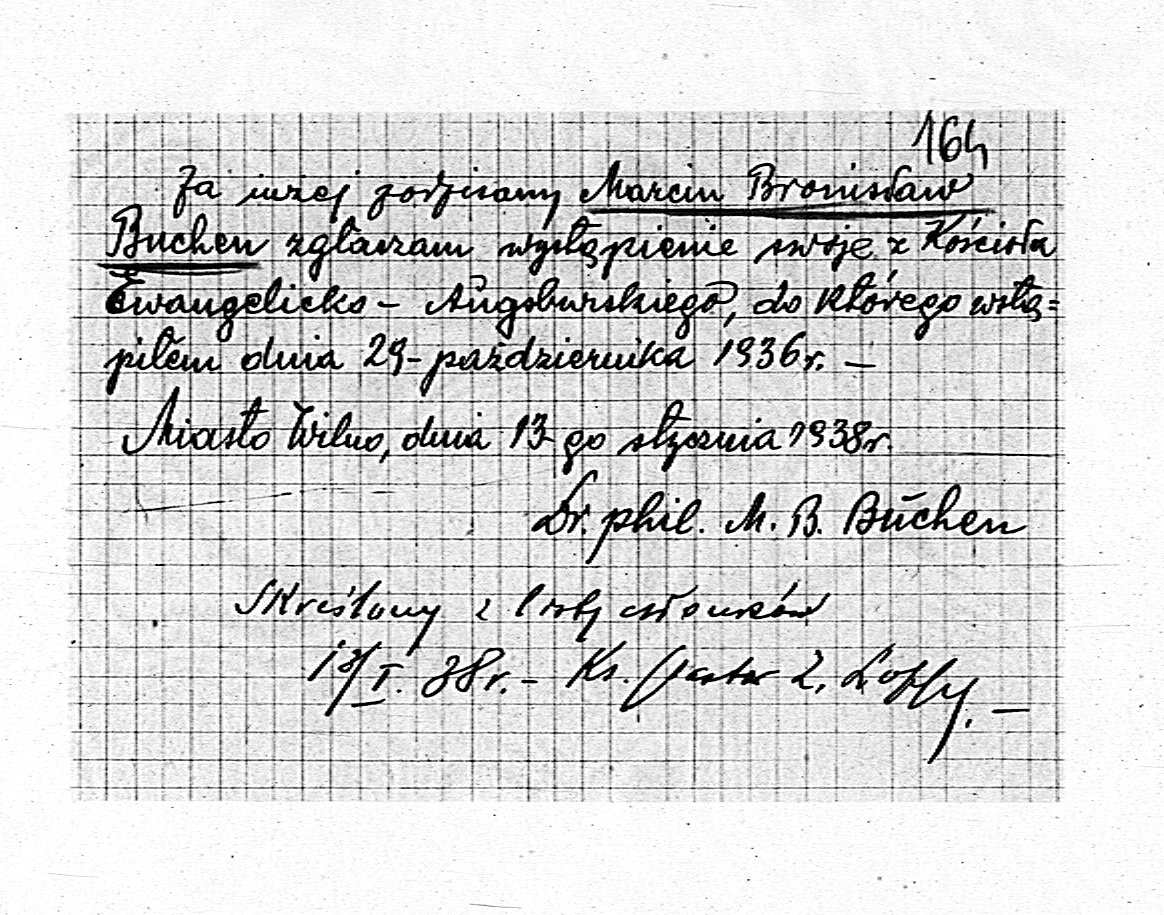 164
Ja niżej podpisany Marcin Bronisław
Buchen zgłaszam wystąpienie swoje z Kościoła
Ewangelicko - Augsburskiego, do którego wstą=
piłem dnia 29-października 1936r. —
Miasto Wilno, dnia 13-go stycznia 1938r.
Dr. phil. M. B. Buchen
Skreślony z listy członków
I. 38r. - Ks. Pastor Z. Loppe. —